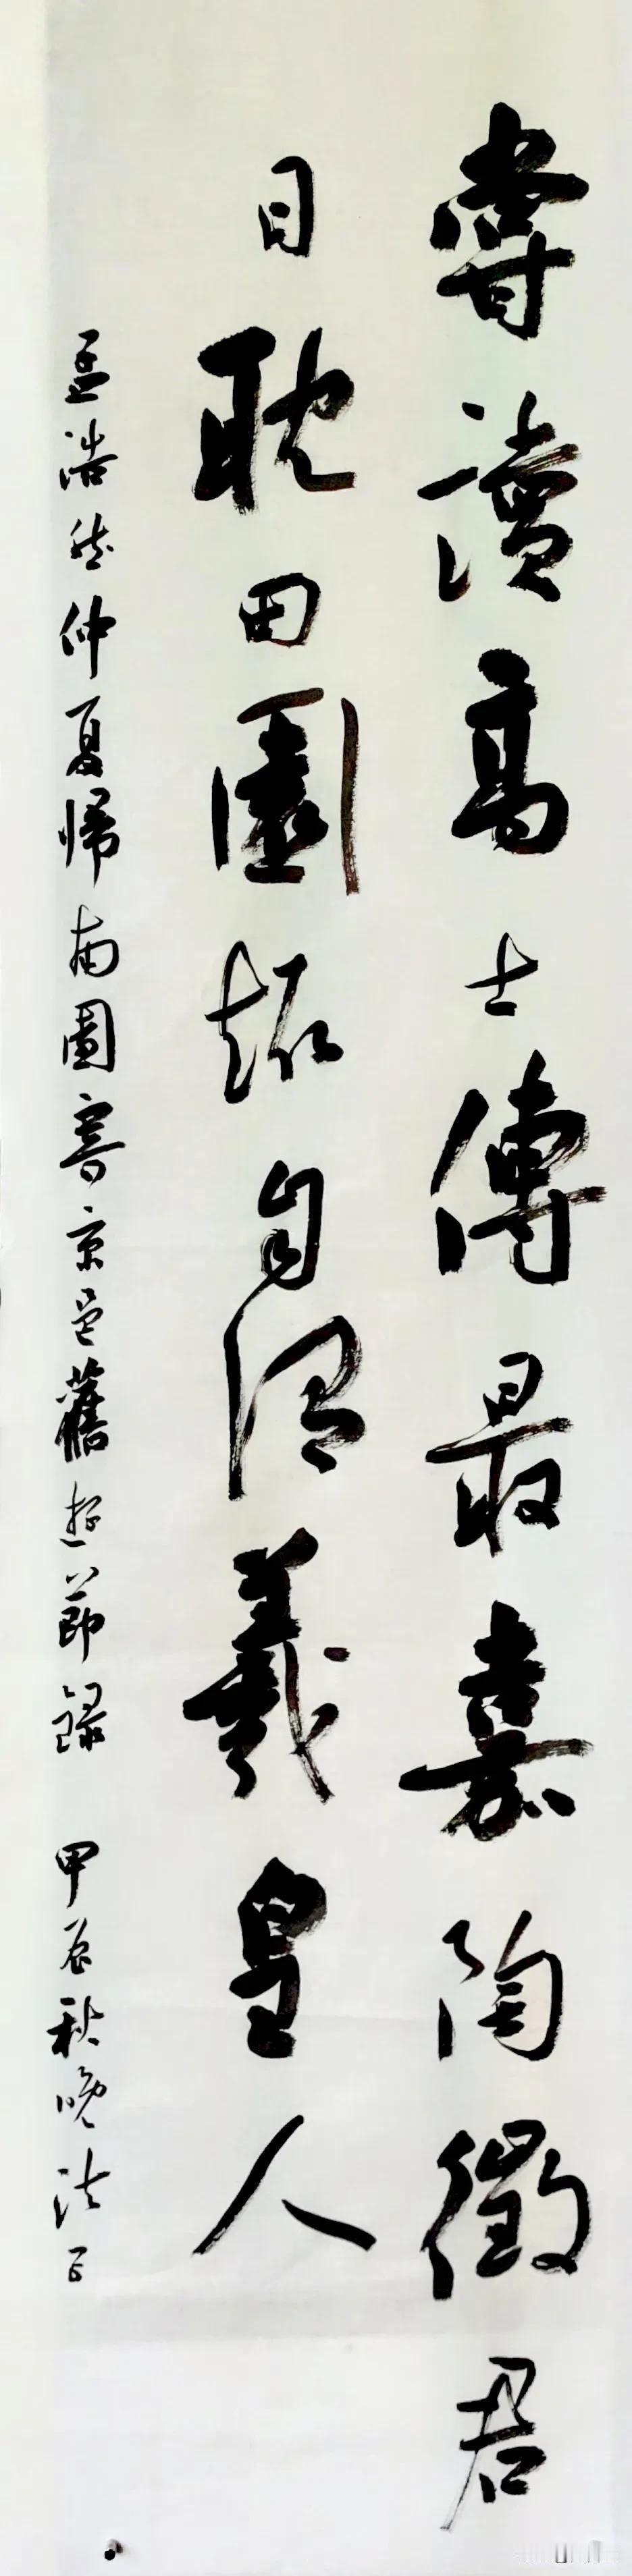 嘗讀高士傳最嘉陶徵君
日耽田園趣自謂羲皇人
孟浩然仲夏歸南園寄京邑舊遊節録 甲辰秋晚法正